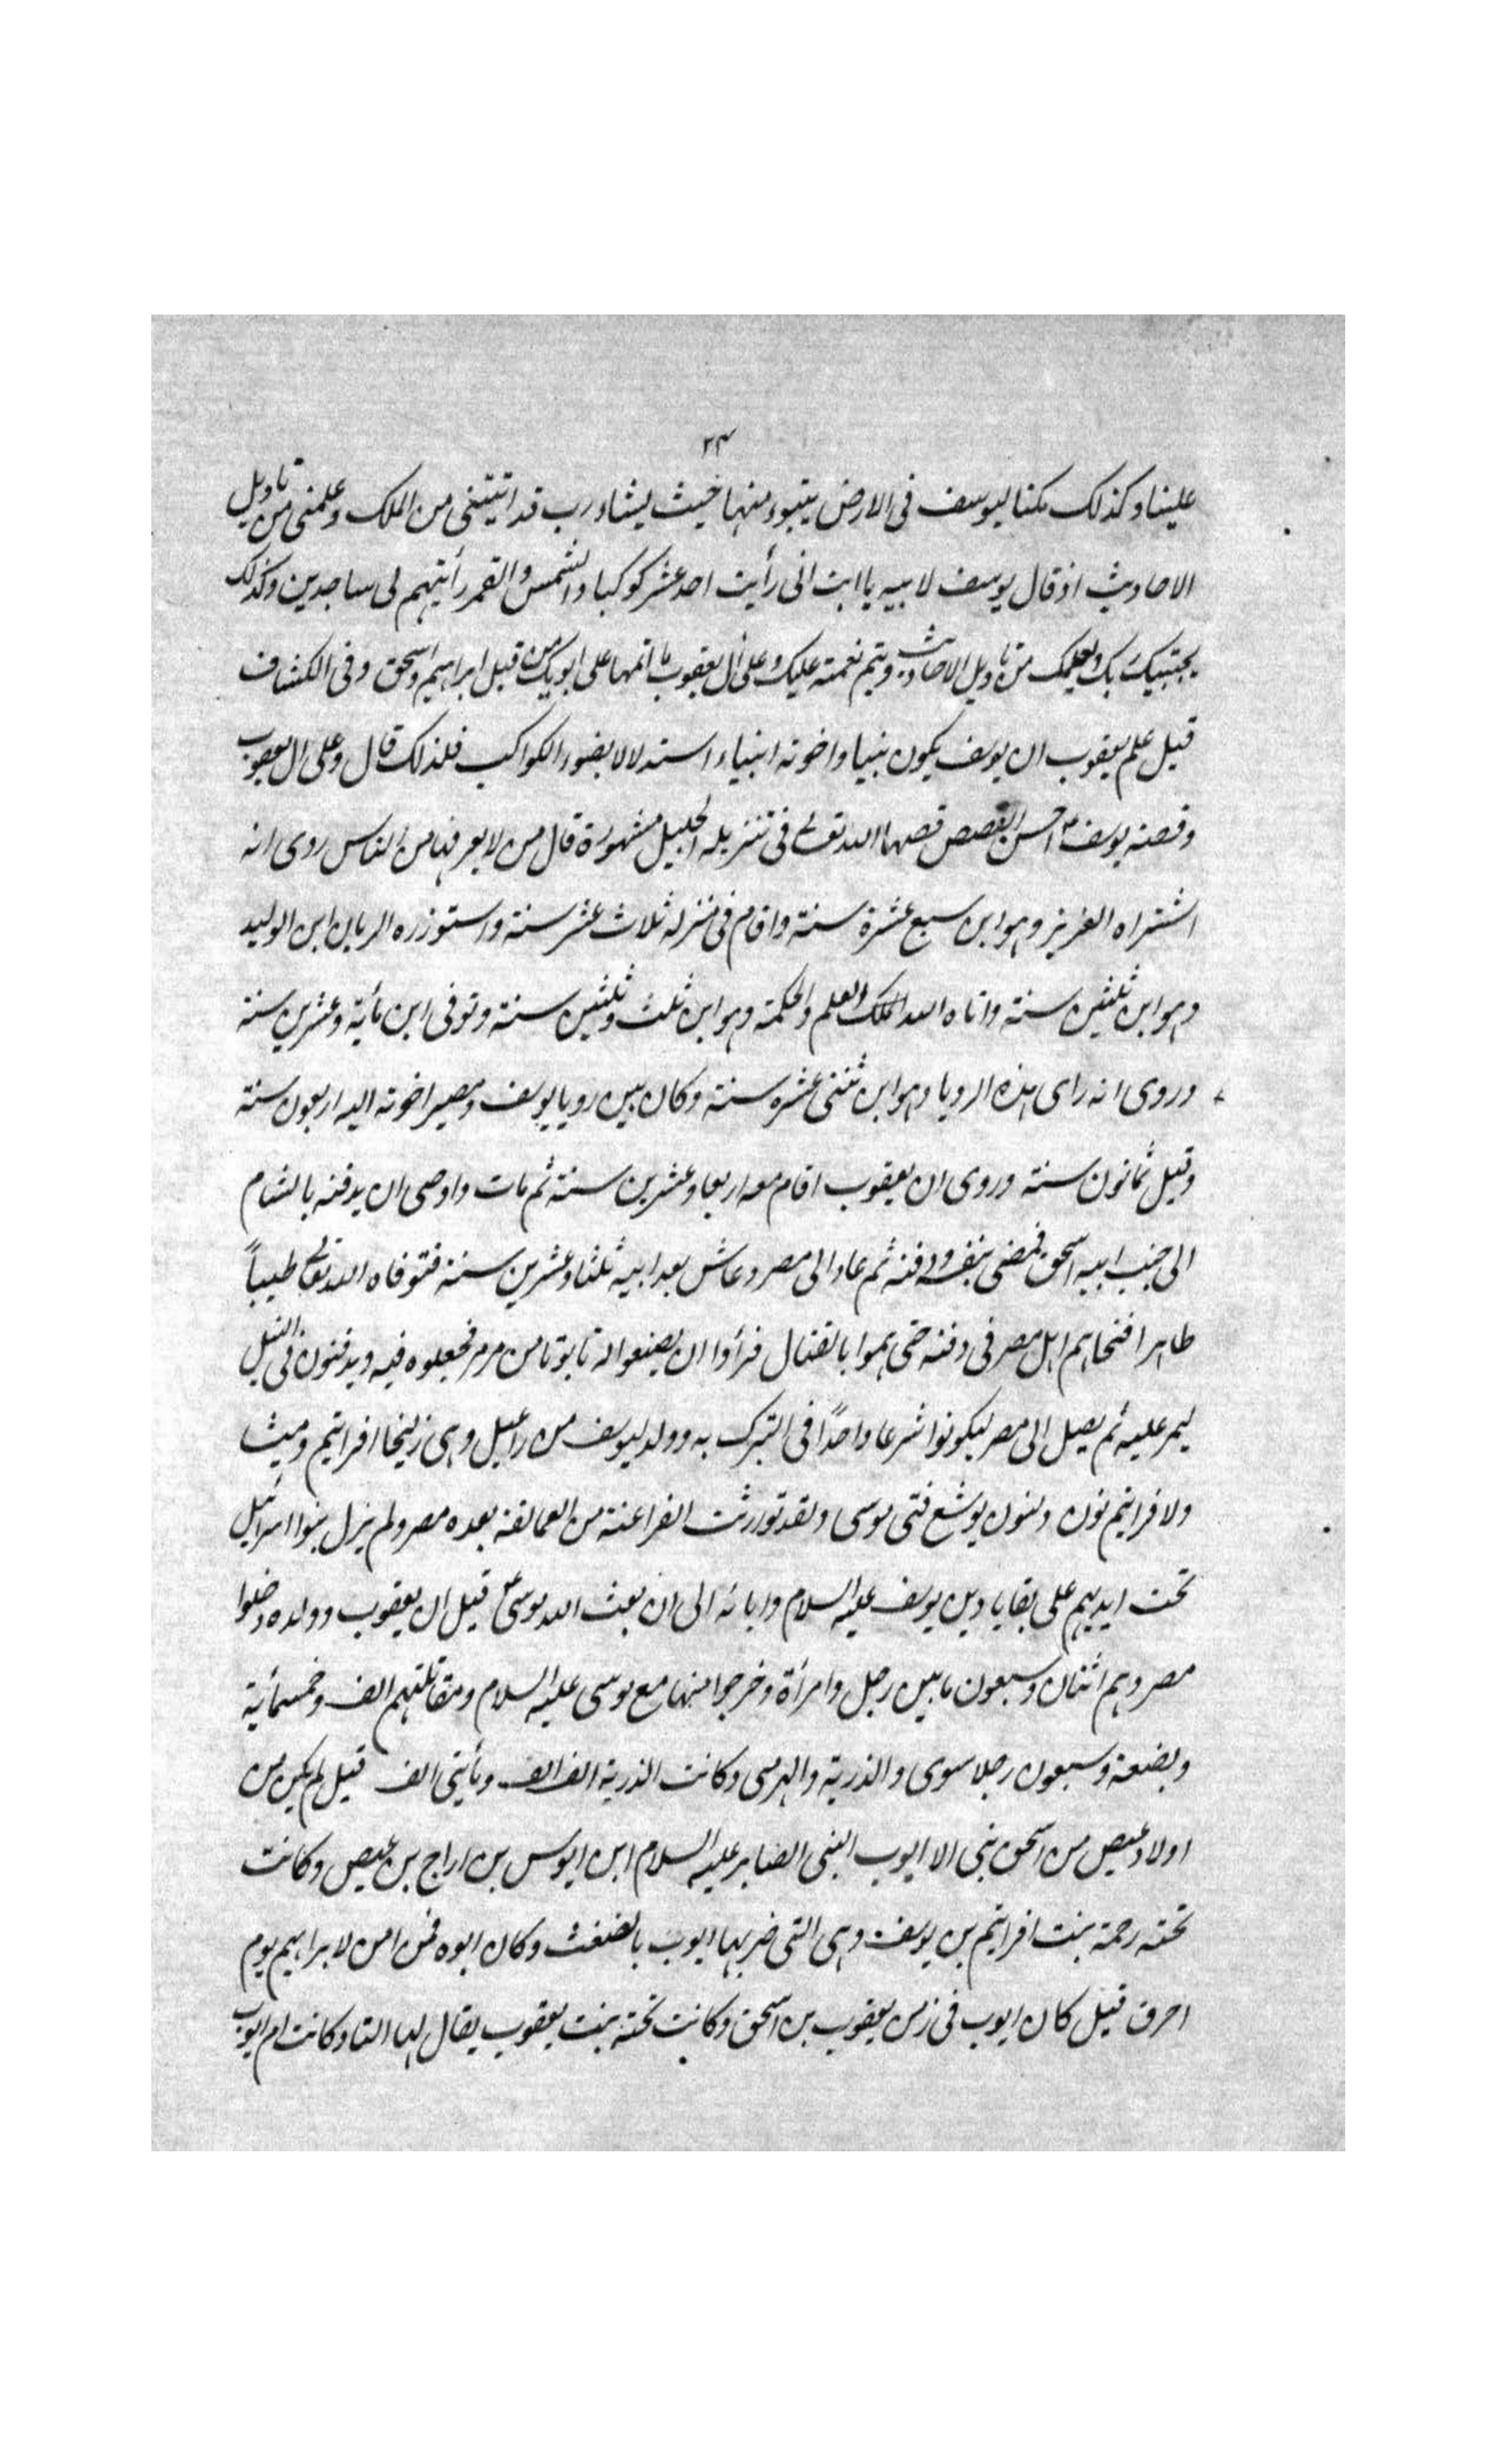 ٢٤
علينا وكذلك مكنا ليوسف فى الارض يتبوء منها حيث يشاء رب قد اتيتنى من الملك وعلمتنى من تاويل
الاحاديث اذ قال يوسف لابيه يا ابت انى رأيت احد عشر كوكبا والشمس والقمر رأيتهم لى ساجدين وكذلك
يجتبيك ربك ويعلمك من تاويل الاحاديث ويتم نعمته عليك وعلى آل يعقوب كما اتمها على ابويك من قبل ابراهيم واسحق وفى الكشاف
قيل علم يعقوب ان يوسف يكون نبيا واخوته انبياء استدلالا بضوء الكواكب فلذلك قال وعلى ال يعقوب
وقصة يوسف ع احسن القصص قصها الله تعالى فى تنزيله الجليل مشهورة قال من لا يعرفها من الناس روى انه
اشتراه العزيز وهو ابن سبع عشرة سنة واقام فى منزله ثلاث عشر سنة واستوزره الريان ابن الوليد
وهو ابن ثلثين سنة واتاه الله الملك والعلم والحكمة وهو ابن ثلث وثلثين سنة وتوفى ابن مأية وعشرين سنة
وروى انه راى هذه الرويا وهو ابن ثنتى عشره سنة وكان بين رويا يوسف ومصير اخوته اليه اربعون سنة
وقيل ثمانون سنة وروى ان يعقوب اقام معه اربعا وعشرين سنة ثم مات واوصى ان يدفنه بالشام
الى جنب ابيه اسحق فمضى بنفسه ودفنه ثم عاد الى مصر وعاش بعد ابيه ثلثا وعشرين سنة فتوفاه الله تعالى طيباً
طاهرا فتخاهم اهل مصر فى دفنه حتى هموا بالقتال فرأوا ان يصنعوا له تابوتا من مرمر فجعلوه فيه ويدفنون فى النيل
ليمر عليه ثم يصل الى مصر ليكونوا شرعا واحدًا فى التبرك به وولد ليوسف من راعيل وهى زليخا افرائيم وميشا
ولافرائيم نون ولنون يوشع فتى موسى ولقد تورثت الفراعنة من العمالقة بعده مصر ولم يزل بنوا اسرائيل
تحت ايديهم على بقايا دين يوسف عليه السلام وابائه الى ان بعث الله موسى ع قيل ان يعقوب وولده دخلوا
مصر وهم اثنان وسبعون ما بين رجل وامرأة وخرجوا منها مع موسى عليه السلام ومقاتلتهم الف وخمسمأية
وبضعة وسبعون رجلا سوى والذرية والهرمى وكانت الذرية الف الف ومأيتى الف قيل لم يكن من
اولاد عيص من اسحق نبى الا ايوب النبى الصابر عليه السلام ابن ايوس بن اراج بن عيص وكانت
تحته رحمة بنت افرائيم بن يوسف وهى التى ضربها ايوب بالضغث وكان ابوه فمن امن لابراهيم يوم
احرق قيل كان ايوب فى زمن يعقوب بن اسحق وكانت تحته بنت يعقوب يقال لها التا وكانت ام ايوب